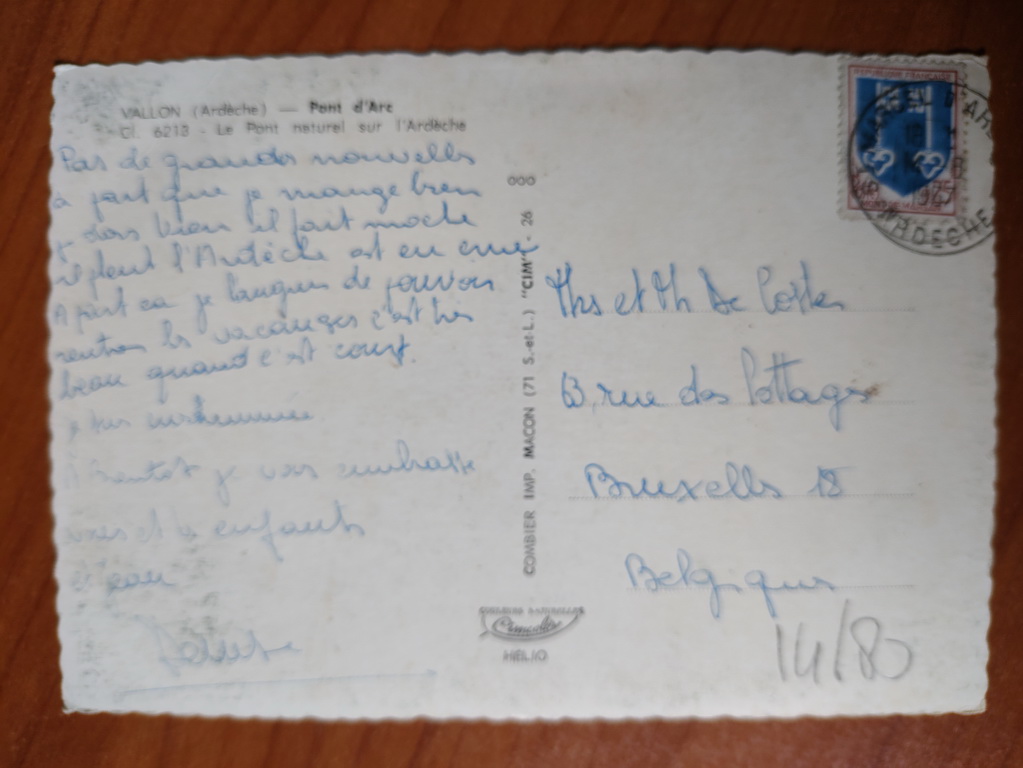 VALLON (Ardèche) — Pont d'Arc
Cl. 6213 - Le Pont naturel sur l'Ardèche
Pas de grandes nouvelles
à part que je mange bien
je dors bien il fait moche
il pleut l'Ardèche est en crue
A part ça je languis de pouvoir
rentrer les vacances c'est très
beau quand c'est court.
je suis
A bientôt je vous embrasse
vous et enfants
et
000
COMBIER IMP. MACON (71 S.-et-L.) "CIM" 26
HÉLIO
RÉPUBLIQUE FRANÇAISE
ARDECHE
et Th De Coster
63, rue des Pottages
Bruxelles 18
Belgique
14/80